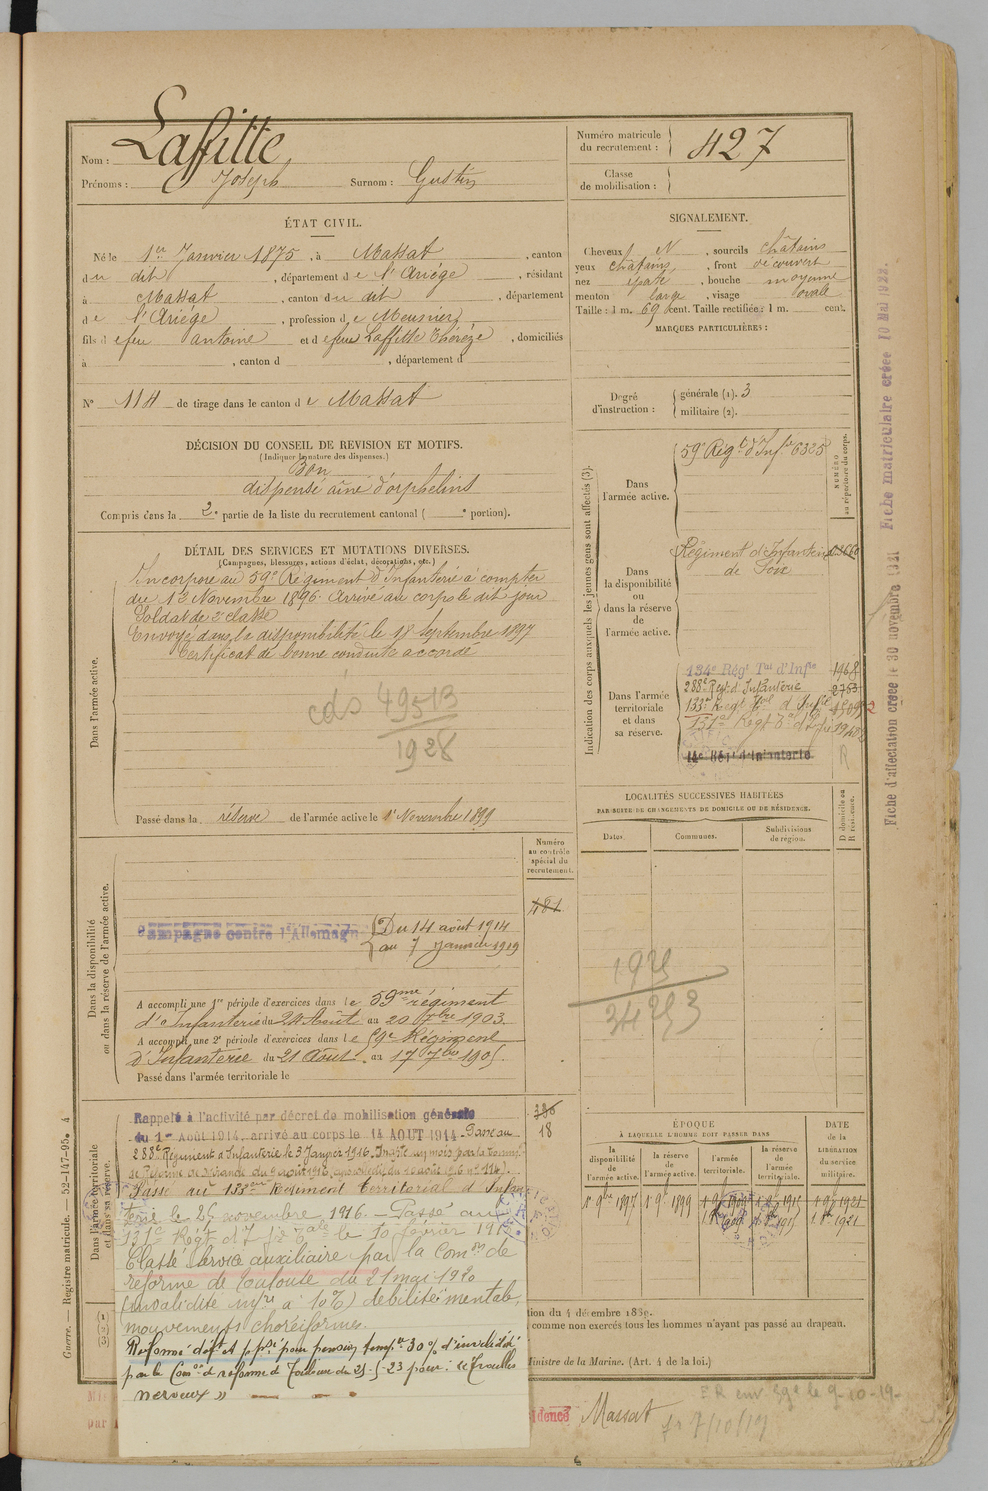 Nom : Laffitte
Prénoms : Joseph Surnom : Gustin
Numéro matricule du recrutement : 427
Classe de mobilisation :
ÉTAT CIVIL.
Né le 1er Janvier 1875, à Massat, canton
du dit, département de l'Ariége, résidant
à Massat, canton du dit, département
de l'Ariége, profession de Meunier
fils de feu Antoine et de feue Laffitte Thérèze, domiciliés
à , canton d , département d
N° 114 de tirage dans le canton de Massat
SIGNALEMENT.
Cheveux N, sourcils châtains
yeux châtains, front découvert
nez épaté, bouche moyenne
menton large, visage ovale
Taille : 1 m. 69 cent. Taille rectifiée : 1 m. cent.
MARQUES PARTICULIÈRES :
Degré d'instruction : générale (1). 3
militaire (2).
DÉCISION DU CONSEIL DE REVISION ET MOTIFS.
(Indiquer la nature des dispenses.)
Bon
dispensé aîné d'orphelins
Compris dans la 2e partie de la liste du recrutement cantonal ( e portion).
DÉTAIL DES SERVICES ET MUTATIONS DIVERSES.
(Campagnes, blessures, actions d'éclat, décorations, etc.)
Dans l'armée active.
Incorporé au 59e Régiment d'Infanterie à compter
du 13 Novembre 1896. Arrivé au corps le dit jour
Soldat de 2e classe
Envoyé dans la disponibilité le 18 Septembre 1897
Certificat de bonne conduite accordé
cds 49513
1928
Passé dans la réserve de l'armée active le 1er Novembre 1899
Indication des corps auxquels les jeunes gens sont affectés (3).
NUMÉRO au répertoire du corps.
Dans l'armée active.
59e Régt d'Infie 6325
Dans la disponibilité ou dans la réserve de l'armée active.
Régiment d'Infanterie
de Foix
Dans l'armée territoriale et dans sa réserve.
134e Rég Tal d'Infie 1968
288e Regt d'Infanterie
133e Regt Tal d'Infie
14e Rég d'Infanterie
R
LOCALITÉS SUCCESSIVES HABITÉES
PAR SUITE DE CHANGEMENTS DE DOMICILE OU DE RÉSIDENCE.
Dates. Communes. Subdivisions de région. D domicile ou R résidence.
Dans la disponibilité ou dans la réserve de l'armée active.
Numéro au contrôle spécial du recrutement.
Campagne contre l'Allemagne Du 14 août 1914
au 7 Janvier 1919
A accompli une 1re période d'exercices dans le 59me régiment
d'Infanterie du 24 Août au 20 7bre 1903
A accompli une 2e période d'exercices dans le 59e Régiment
d'Infanterie du 21 Août au 17 7bre 1905.
Passé dans l'armée territoriale le
Dans l'armée territoriale et dans sa réserve.
Rappelé à l'activité par décret de mobilisation générale
du 1er Août 1914, arrivé au corps le 14 AOUT 1914. Passé au
288e Régiment d'Infanterie le 3 Janvier 1916.
18
Passé au 133eme Régiment Territorial d'Infan
terie le 25 novembre 1916. Passé au
le 10 février 191
Classé service auxiliaire par la Comon de
réforme de Toulouse du 21 mai 1920
(invalidité infre à 10%) débilité mentale,
mouvements choréiformes.
Réformé déft et ppsé pour pension tempre 30% d'invalidité
par la Comon de réforme de Toulouse du 25-5-23 pour : « Troubles
nerveux »
ÉPOQUE
À LAQUELLE L'HOMME DOIT PASSER DANS
la disponibilité de l'armée active. la réserve de l'armée active. l'armée territoriale. la réserve de l'armée territoriale.
DATE de la LIBÉRATION du service militaire.
1 9bre 1897 1 9 1899
tion du 4 décembre 1889.
comme non exercés tous les hommes n'ayant pas passé au drapeau.
Ministre de la Marine. (Art. 4 de la loi.)
sidence Massat
7/10/19
Guerre. — Registre matricule. — 52-147-95. 4
(1)
(2)
(3)
Fiche d'affectation créée le 30 novembre 1931
Fiche matriculaire créée 10 Mai 1933.